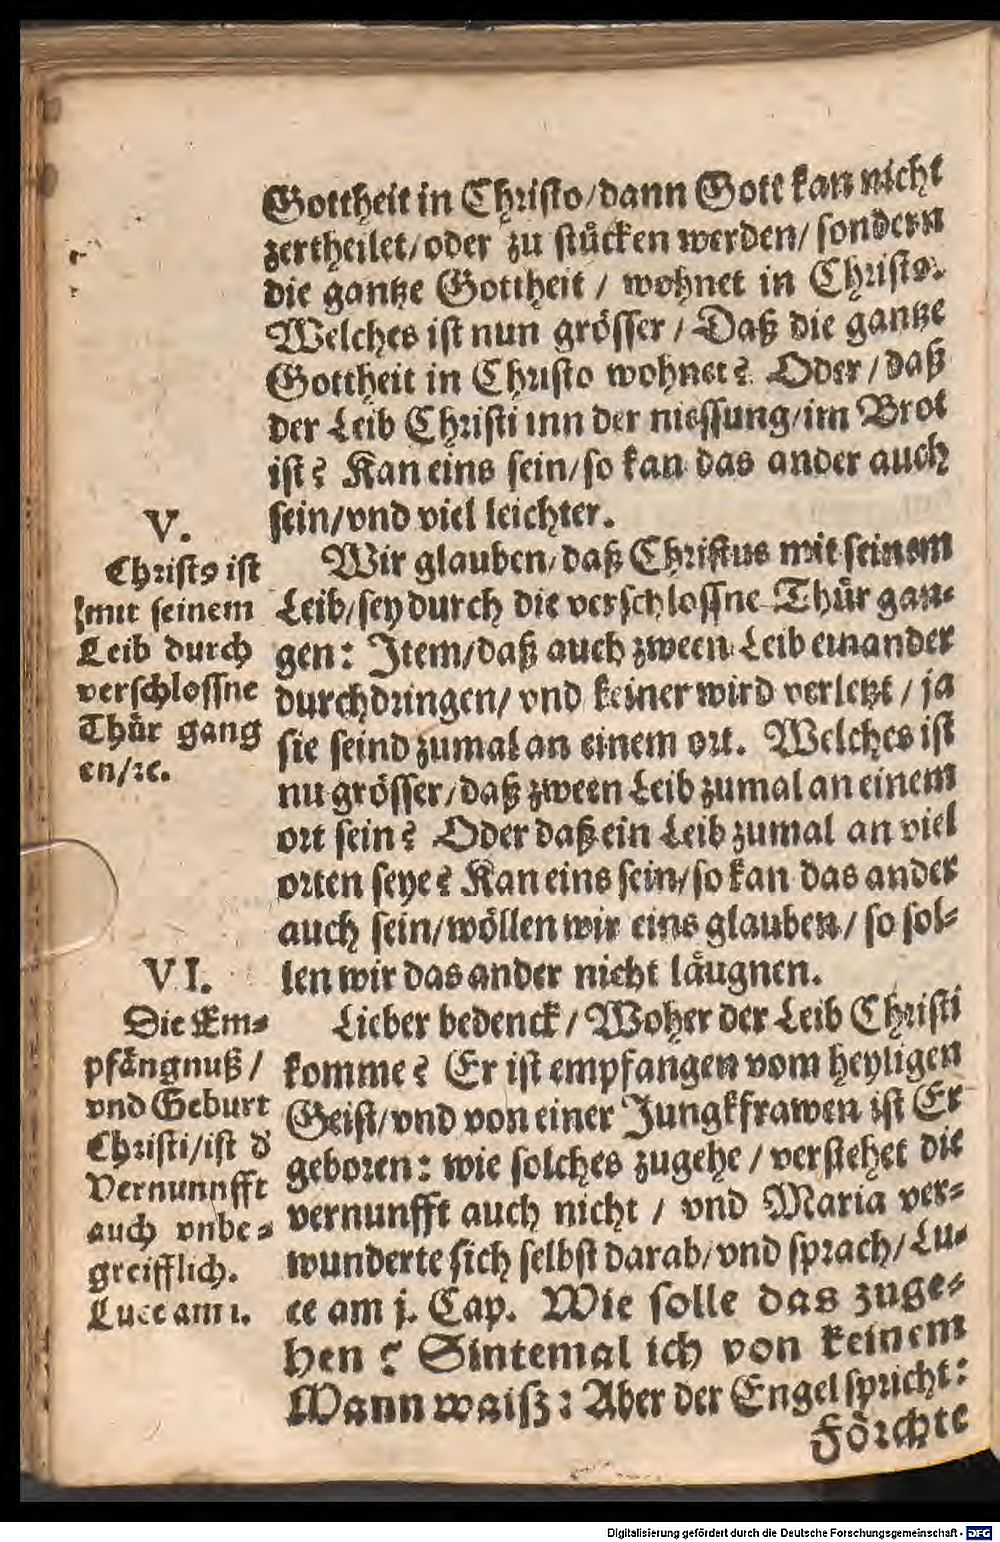 Gottheit in Christo/dann Gott kan nicht
zertheilet/oder zu stücken werden/ sondern
die gantze Gottheit / wohnet in Christo.
Welches ist nun grösser / Daß die gantze
Gottheit in Christo wohnet? Oder / daß
der Leib Christi inn der niessung/im Brot
ist? Kan eins sein/so kan das ander auch
sein/vnd viel leichter.
V.
Christꝰ ist
mit seinem
Leib durch
verschlossne
Thür gang
en/ꝛc.
Wir glauben/daß Christus mit seinem
Leib/sey durch die verschlossne Thür gan-
gen: Item/daß auch zween Leib einander
durchdringen/ vnd keiner wird verletzt / ja
sie seind zumal an einem ort. Welches ist
nu grösser/daß zween Leib zumal an einem
ort sein? Oder daß ein Leib zumal an viel
orten seye? Kan eins sein/so kan das ander
auch sein/wöllen wir eins glauben/ so sol-
len wir das ander nicht läugnen.
VI.
Die Em-
pfängnuß /
vnd Geburt
Christi/ist d̕
Vernunnfft
auch vnbe-
greifflich.
Luce am 1.
Lieber bedenck / Woher der Leib Christi
komme? Er ist empfangen vom heyligen
Geist/vnd von einer Jungkfrawen ist Er
geboren: wie solches zugehe / verstehet die
vernunfft auch nicht / vnd Maria ver-
wunderte sich selbst darab/vnd sprach/ Lu-
ce am j. Cap. Wie solle das zuge-
hen? Sintemal ich von keinem
Mann waiß: Aber der Engel spricht:
Förchte
Digitalisierung gefördert durch die Deutsche Forschungsgemeinschaft - DFG